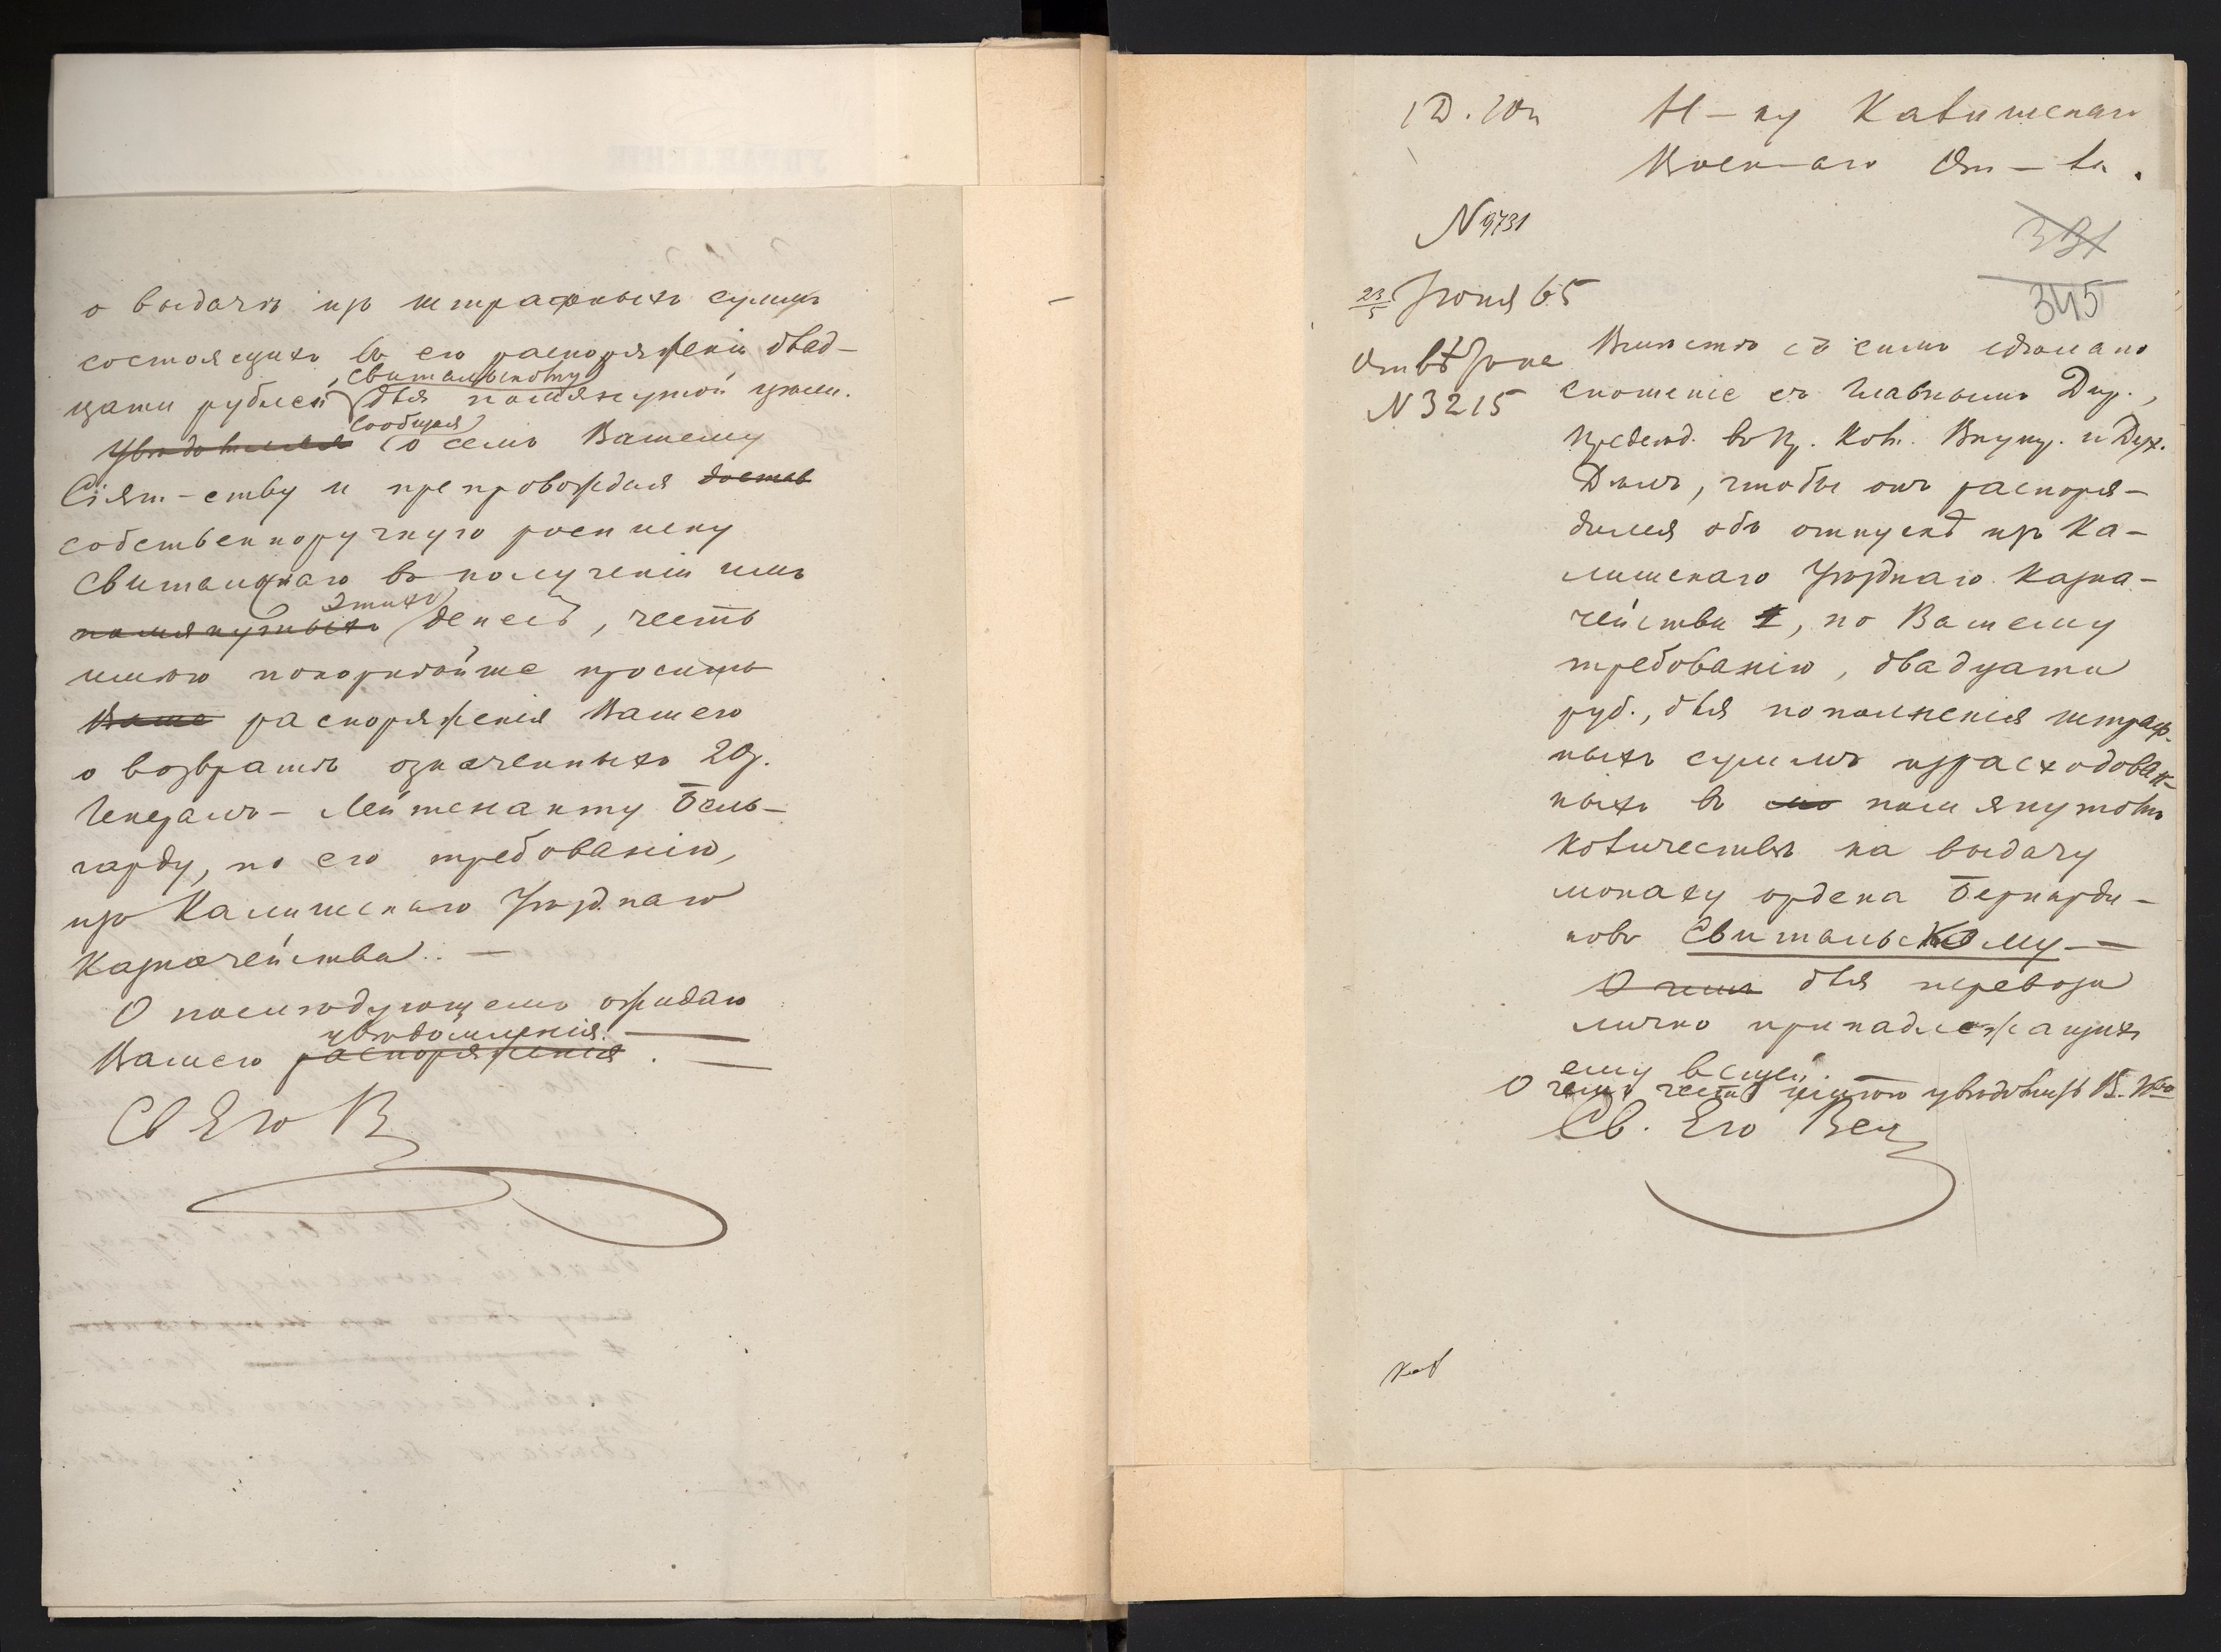 о выдачѣ изъ штрафныхъ суммъ
состоящихъ въ его распоряженіи двад-
Свитальскому
цати рублей для помянутой цѣли.
сообщая
Увѣдомляя о семъ Вашему
Сіят-ству и препровождая достав
собственноручную росписку
Свитальскаго въ полученіи имъ
этихъ
помянутыхъ денегъ, честь
имѣю покорнѣйше просить
Ваше распоряженія Вашего
о возвратѣ означенныхъ 20 р.
Генералъ-Лейтенанту Бель-
гарду, по его требованію,
изъ Калишскаго Уѣзднаго
Казначейства. —
О послѣдующемъ ожидаю
увѣдомленія. —
Вашего распоряженія. —
Св Его В
1 Д. 10
Н-ку Калишскаго
Военнаго От-ла.
N 9731
331
345
23/5 Іюня 65
Отвѣт Іюня
N 3215
Вмѣстѣ съ симъ сдѣлано
сношеніе съ Главнымъ Дир.,
Предсѣд. въ Пр. Ком. Внутр. и Дух.
Дѣлъ, чтобы онъ распоря-
дился объ отпускѣ изъ Ка-
лишскаго Уѣзднаго Казна-
чейства, по Вашему
требованію, двадцати
руб., для пополненія штраф-
ныхъ суммъ израсходован-
ныхъ въ помянутомъ
количествѣ на выдачу
монаху ордена Бернарди-
новъ Свитальскому —
О чемъ для перевозки
лично принадлежащихъ
ему вещей.
О чемъ честь имѣю увѣдомить В.
Св. Его Вел